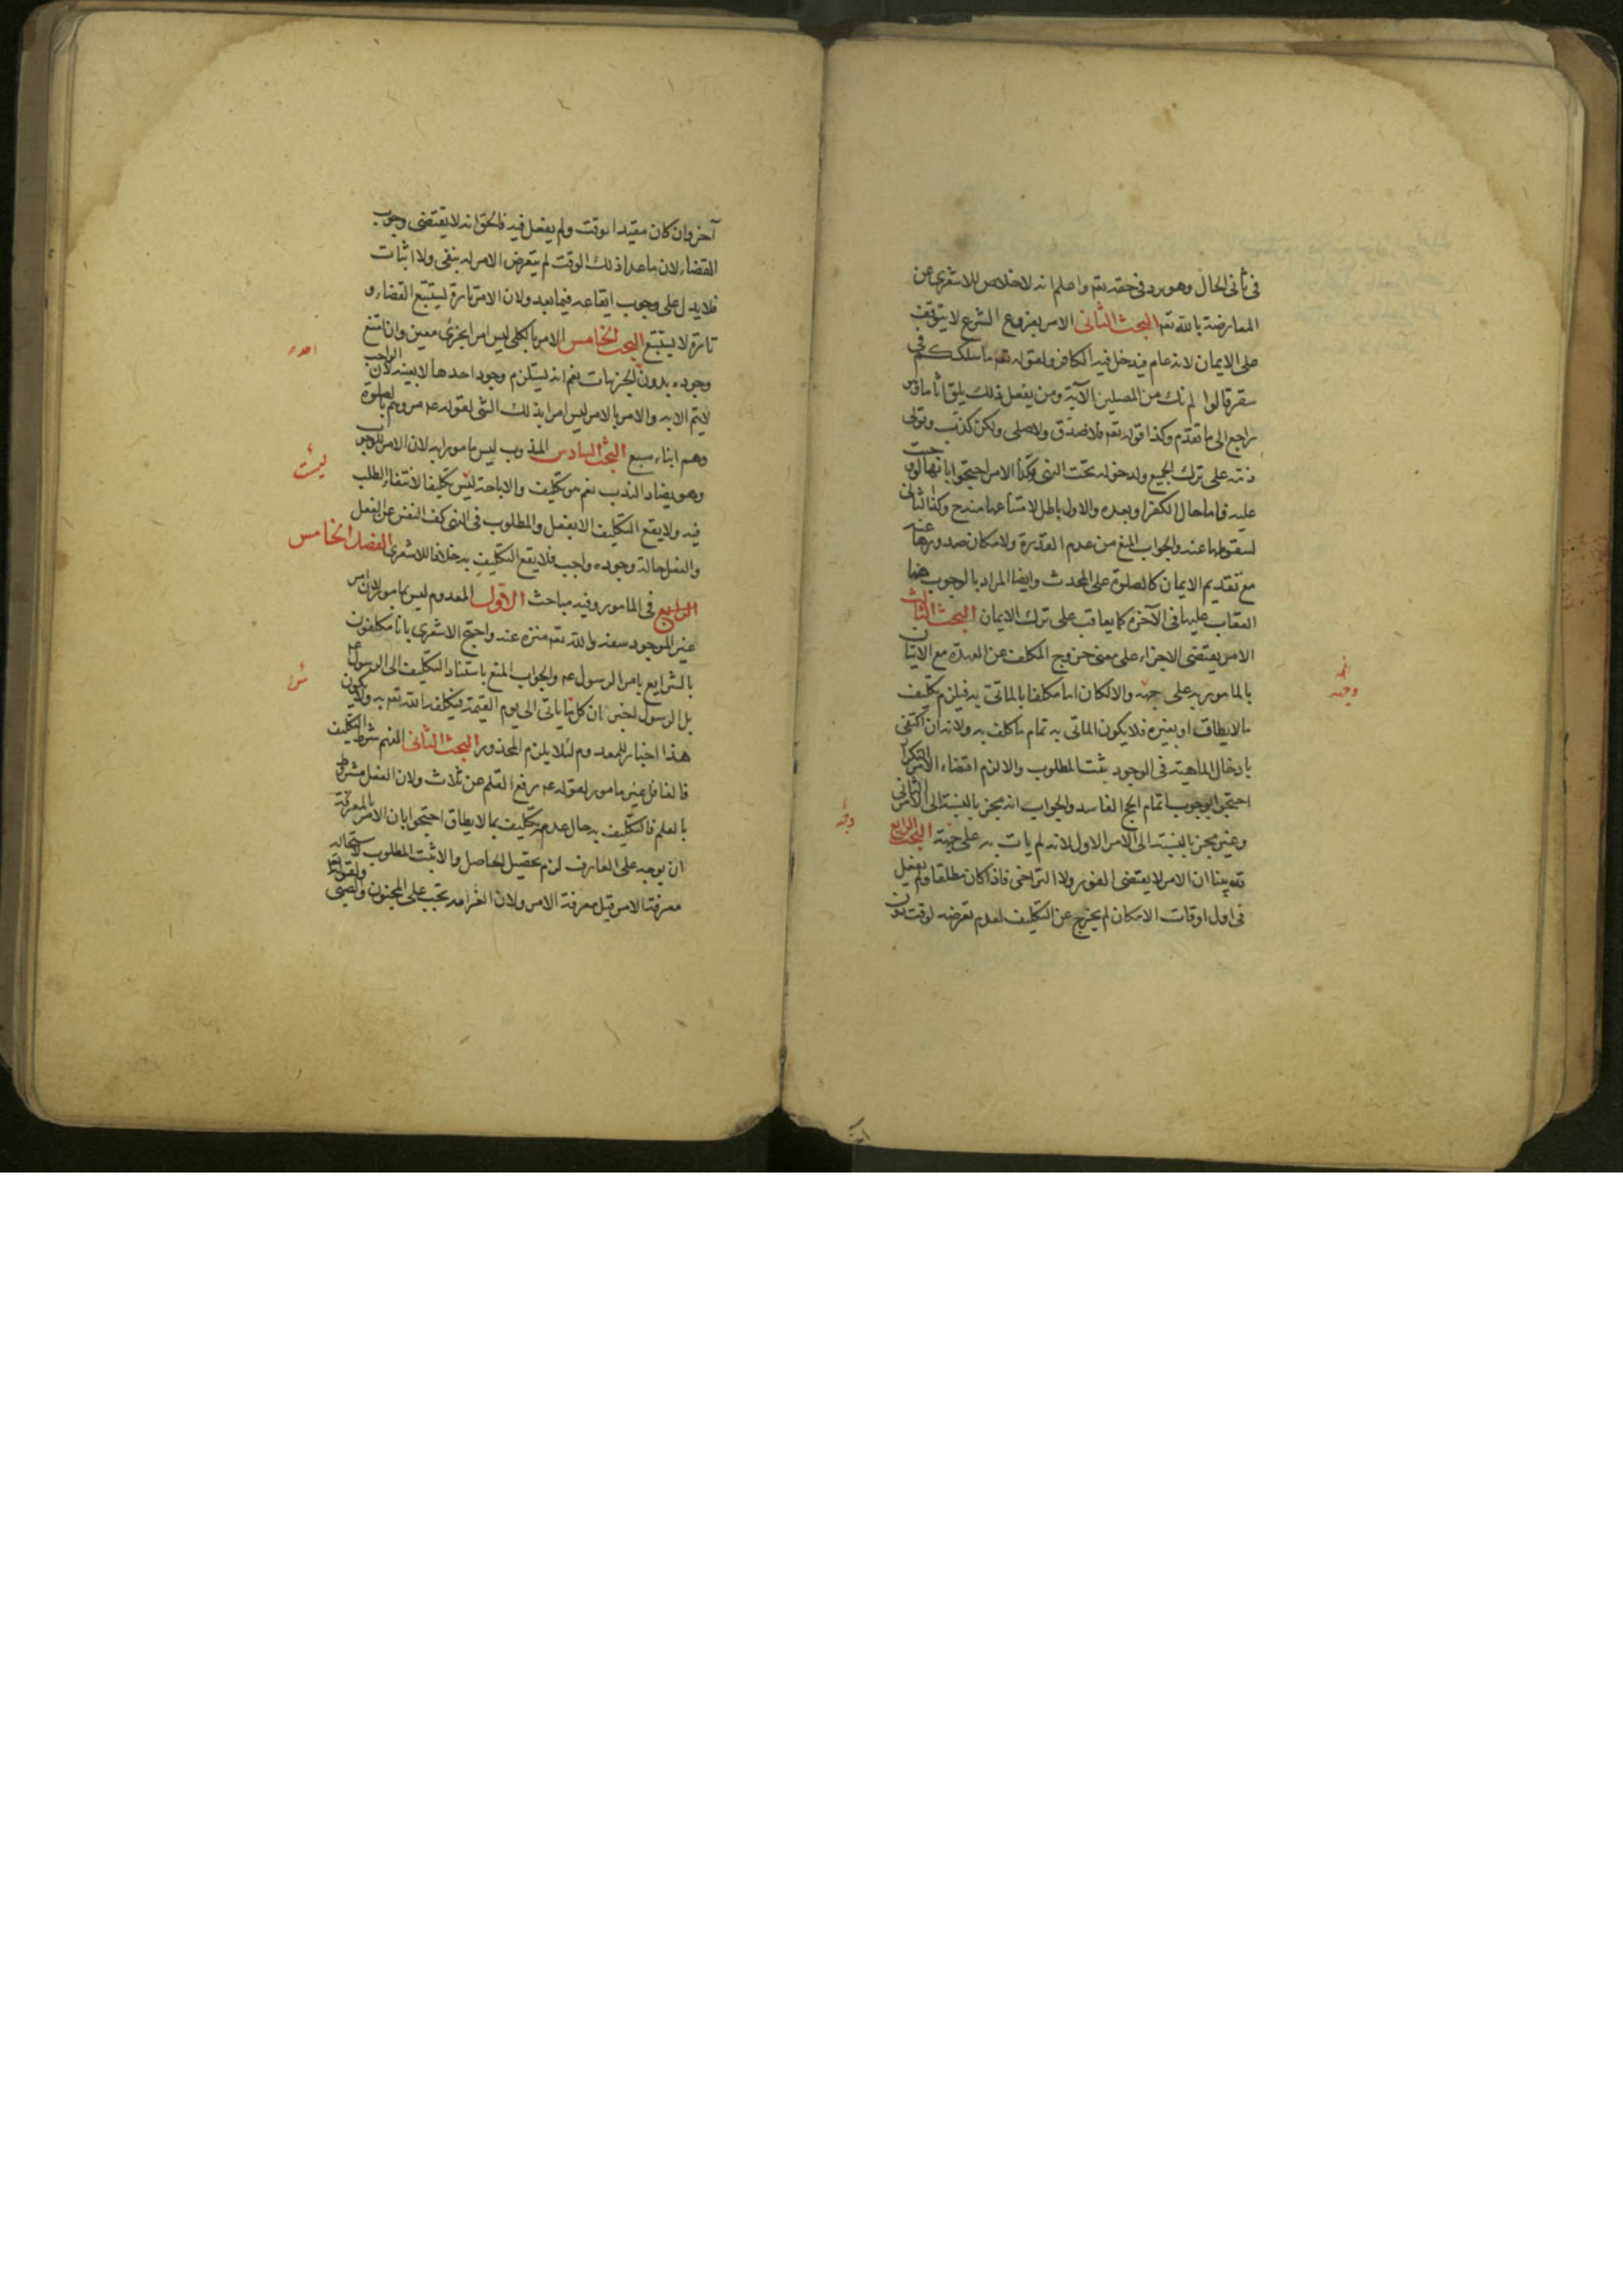 في ثاني الحال وهو يرد في حقه تعم واعلم انه لاخلاص للاشعري عن
المعارضة بالله تعم البحث الثاني الامر بفروع الشرع لا يتوقف
على الايمان لانه عام فيدخل فيه الكافر ولقوله تعم ما سلككم في
سقر قالوا لم نك من المصلين الآية ومن يفعل ذلك يلق اثاما وهو
راجع الى ما تقدم وكذا قوله تعم فلا صدق ولا صلى ولكن كذب وتولى
ذمه على ترك الجميع ولدخوله تحت النهي فكذا الامر احتجوا بانها لو وجبت
عليه فاما حال الكفر او بعده والاول باطل لامتناعها منه ح وكذا الثاني
لسقوطها عنه والجواب المنع من عدم القدرة ولامكان صدورها عنه
مع تقديم الايمان كالصلوة على المحدث وايضا المراد بالوجوب هنا
العقاب عليها في الآخرة كما يعاقب على ترك الايمان البحث الثالث
الامر يقتضي الاجزاء على معنى خروج المكلف عن العهدة مع الاتيان
بالمامور به على جهته والا لكان اما مكلفا بالماتي به فيلزم تكليف
ما لا يطاق او بغيره فلا يكون الماتي به تمام ما كلف به ولانه ان اكتفى
بادخال الماهية في الوجود ثبت المطلوب والا لزم اقتضاء الامر التكرار
احتجوا بوجوب اتمام الحج الفاسد والجواب انه مجز بالنسبة الى الامر الثاني
وغير مجز بالنسبة الى الامر الاول لانه لم يات به على جهته البحث الرابع
قد بينا ان الامر لا يقتضي الفور ولا التراخي فاذا كان مطلقا ولم يفعل
في اول اوقات الامكان لم يخرج عن التكليف لعدم تعرضه لوقت دون
آخر وان كان مقيدا بوقت ولم يفعل فيه فالحق انه لا يقتضي وجوب
القضاء لان ما عدا ذلك الوقت لم يتعرض الامر له بنفي ولا اثبات
فلا يدل على وجوب ايقاعه فيما بعد ولان الامر تارة يستتبع القضاء و
تارة لا يستتبع البحث الخامس الامر بالكلي ليس امرا بجزئي معين وان امتنع
وجوده بدون الجزئيات نعم انه يستلزم وجود احدها لا بعينه لان الواجب
لا يتم الا به والامر بالامر ليس امرا بذلك الشئ لقوله عم مروهم بالصلوة
وهم ابناء سبع البحث السادس المندوب ليس مامورا به لان الامر للوجوب
وهو يضاد الندب نعم هو تكليف والاباحة ليس تكليفا لانتفاء الطلب
فيه ولا يقع التكليف الا بفعل والمطلوب في النهي كف النفس عن الفعل
والفعل حالة وجوده واجب فلا يقع التكليف به خلافا للاشعري الفصل الخامس
الرابع في المامور وفيه مباحث الاول المعدوم ليس مامورا لان امر
غير الموجود سفه والله تعم منزه عنه واحتج الاشعري بانا مكلفون
بالشرايع بامر الرسول عم والجواب المنع باستناد التكليف الى الرسول عم
بل الرسول اخبر ان كل من ياتي الى يوم القيمة فيكلفه الله تعم به ولا يكون
هذا اخبار للمعدوم لئلا يلزم المحذور البحث الثاني الفهم شرط التكليف
فالغافل غير مامور لقوله عم رفع القلم عن ثلاث ولان الفعل مشروط
بالعلم فالتكليف به حال عدمه تكليف بما لا يطاق احتجوا بان الامر بالمعرفة
ان توجه على العارف لزم تحصيل الحاصل والا ثبت المطلوب لاستحالة
معرفة الامر قبل معرفة الامر ولان الغرامة تجب على المجنون والصبي ولقوله تعم